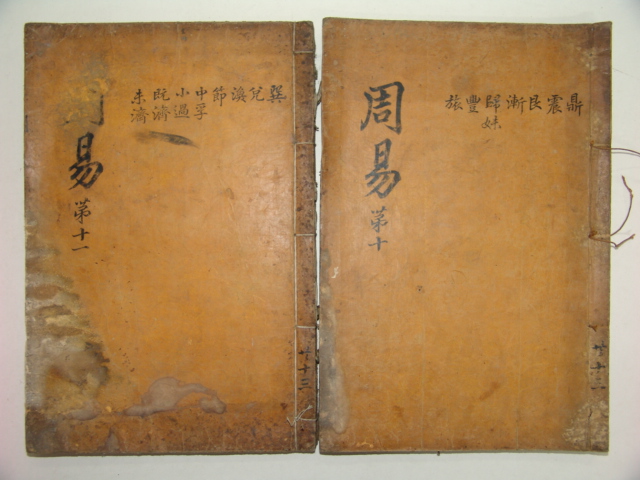 鼎
震
艮
漸
歸妹
豐
旅
周易
第十
共十三
巽
兌
渙
節
中孚
小過
旣濟
未濟
周易
第十一
共十三